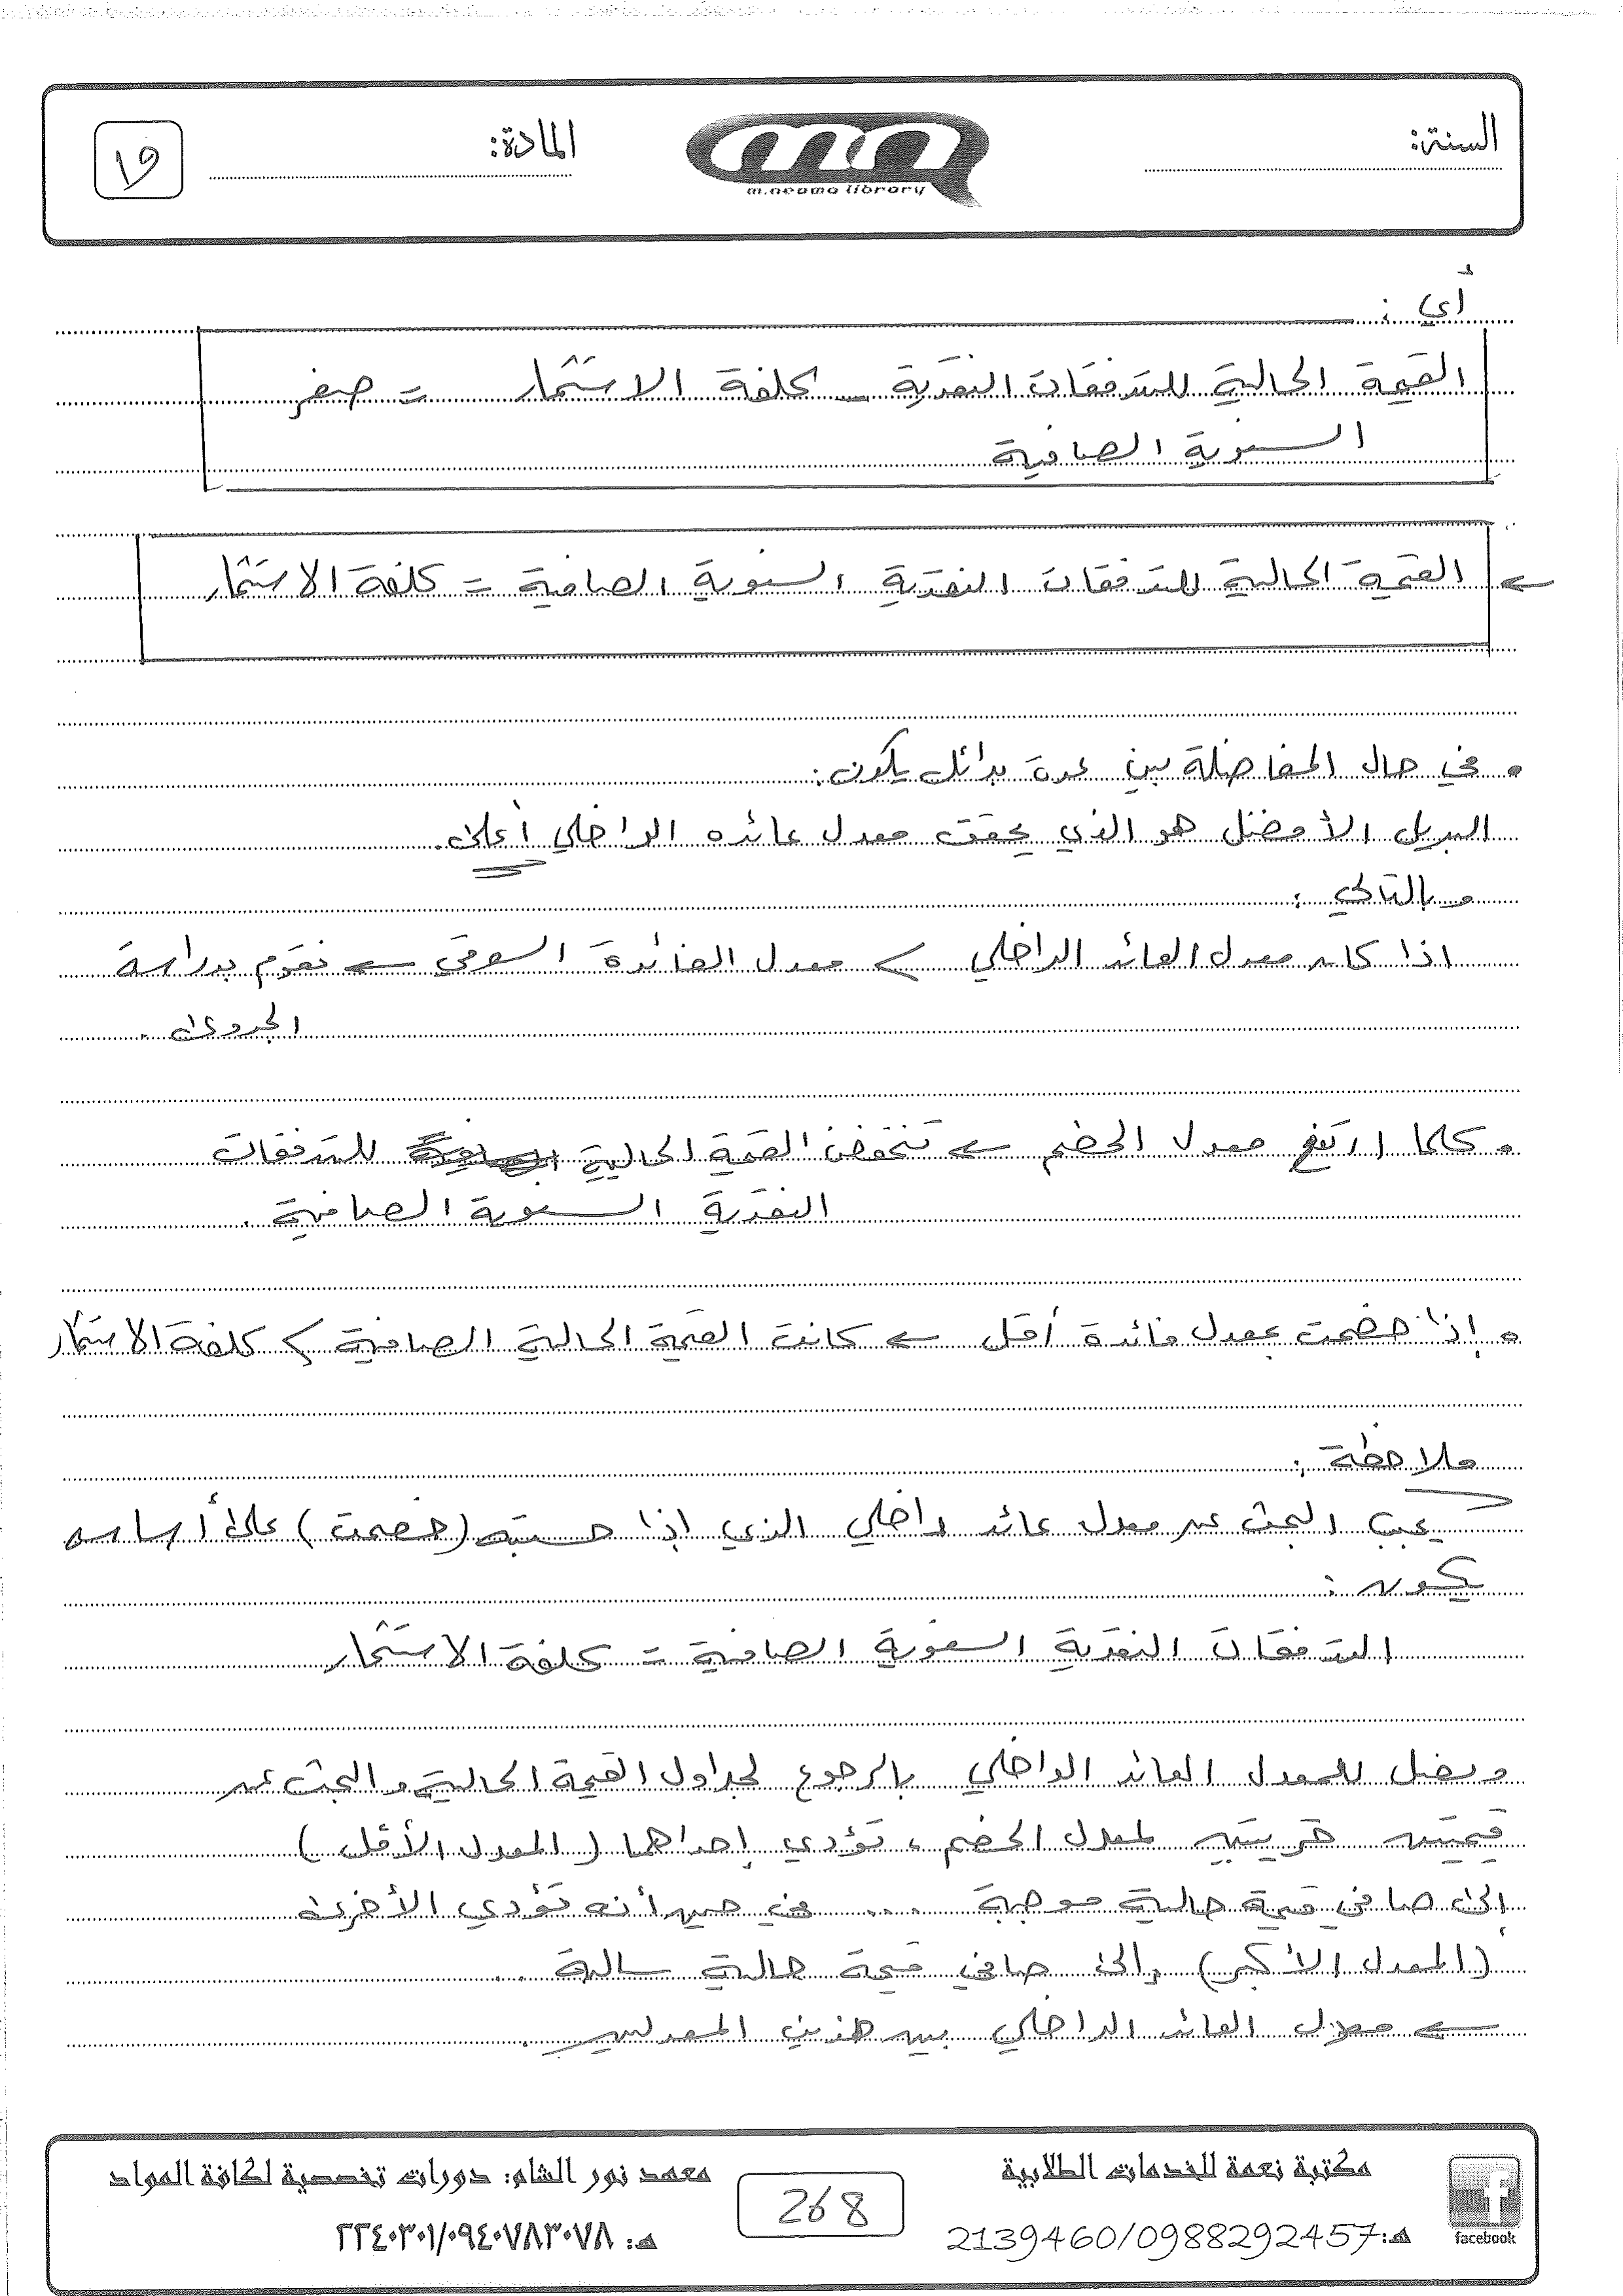 السنة:
m.neama library
المادة:
١٩
أي :
القيمة الحالية للتدفقات النقدية - كلفة الاستثمار = صفر
السنوية الصافية
القيمة الحالية للتدفقات النقدية السنوية الصافية = كلفة الاستثمار
• في حال المفاضلة بين عدة بدائل يكون:
البديل الأفضل هو الذي يحقق معدل عائده الداخلي أعلى.
وبالتالي :
اذا كان معدل العائد الداخلي > معدل الفائدة السوقي ⇐ نقوم بدراسة
الجدوى .
• كلما ارتفع معدل الخصم ⇐ تنخفض القيمة الحالية للتدفقات
النقدية السنوية الصافية .
• إذا خصمت بمعدل فائدة أقل ⇐ كانت القيمة الحالية الصافية > كلفة الاستثمار
ملاحظة :
يجب البحث عن معدل عائد داخلي الذي اذا حسبته (خصمت) على أساسه
يكون :
التدفقات النقدية السنوية الصافية = كلفة الاستثمار
ونصل للمعدل العائد الداخلي بالرجوع لجداول القيمة الحالية والبحث عن
قيمتين قريبتين لمعدل الخصم ، تؤدي إحداهما (المعدل الأقل)
إلى صافي قيمة حالية موجبة .... في حين أنه تؤدي الأخرى
(المعدل الأكبر) إلى صافي قيمة حالية سالبة ..
⇐ معدل العائد الداخلي بين هذين المعدلين .
مكتبة نعمة للخدمات الطلابية
هـ:2139460/0988292457
268
معهد نور الشام: دورات تخصصية لكافة المواد
هـ: ٢٢٤٠٣٠١/٠٩٤٠٧٨٣٠٧٨
facebook